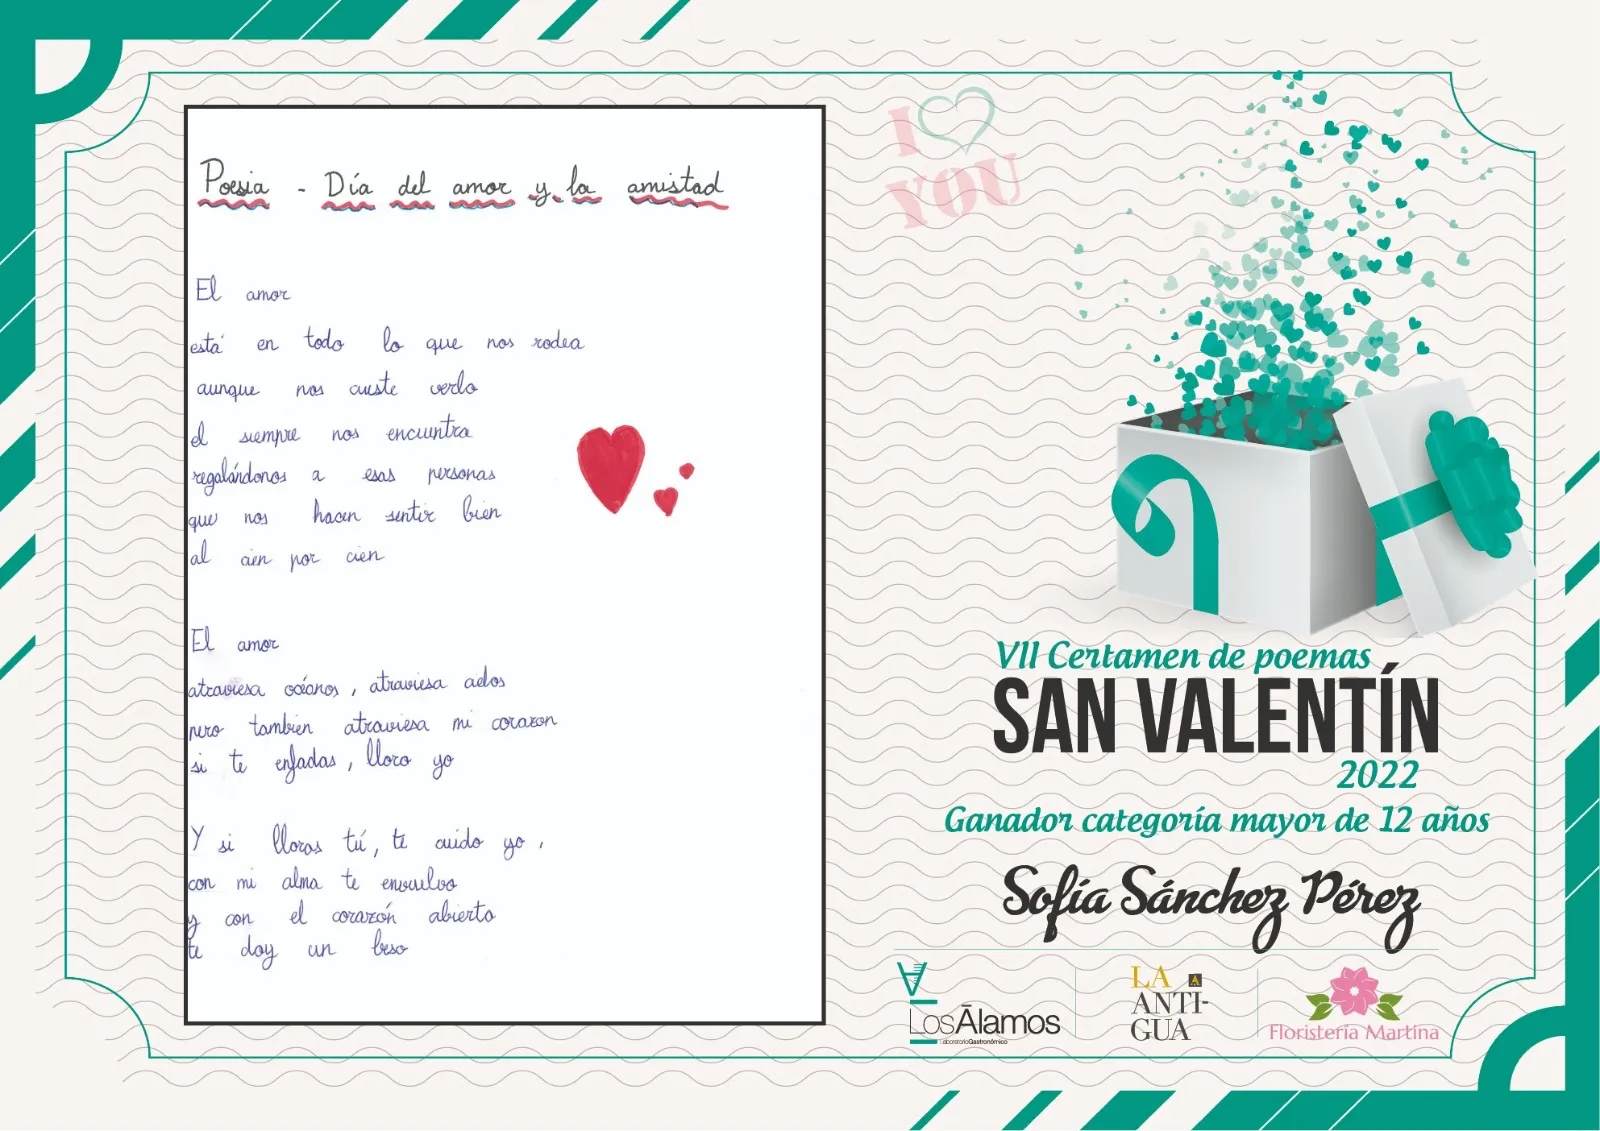 Poesia - Día del amor y la amistad
El amor
está en todo lo que nos rodea
aunque nos cueste verlo
el siempre nos encuentra
regalándonos a esas personas
que nos hacen sentir bien
al cien por cien
El amor
atraviesa océanos, atraviesa cielos
pero también atraviesa mi corazon
si te enfadas, lloro yo
Y si lloras tú, te cuido yo,
con mi alma te envuelvo
y con el corazón abierto
te doy un beso
I
YOU
VII Certamen de poemas
SAN VALENTÍN
2022
Ganador categoría mayor de 12 años
Sofía Sánchez Pérez
LosĀlamos
LaboratorioGastronómico
LA A
ANTI-
GUA
Floristería Martina